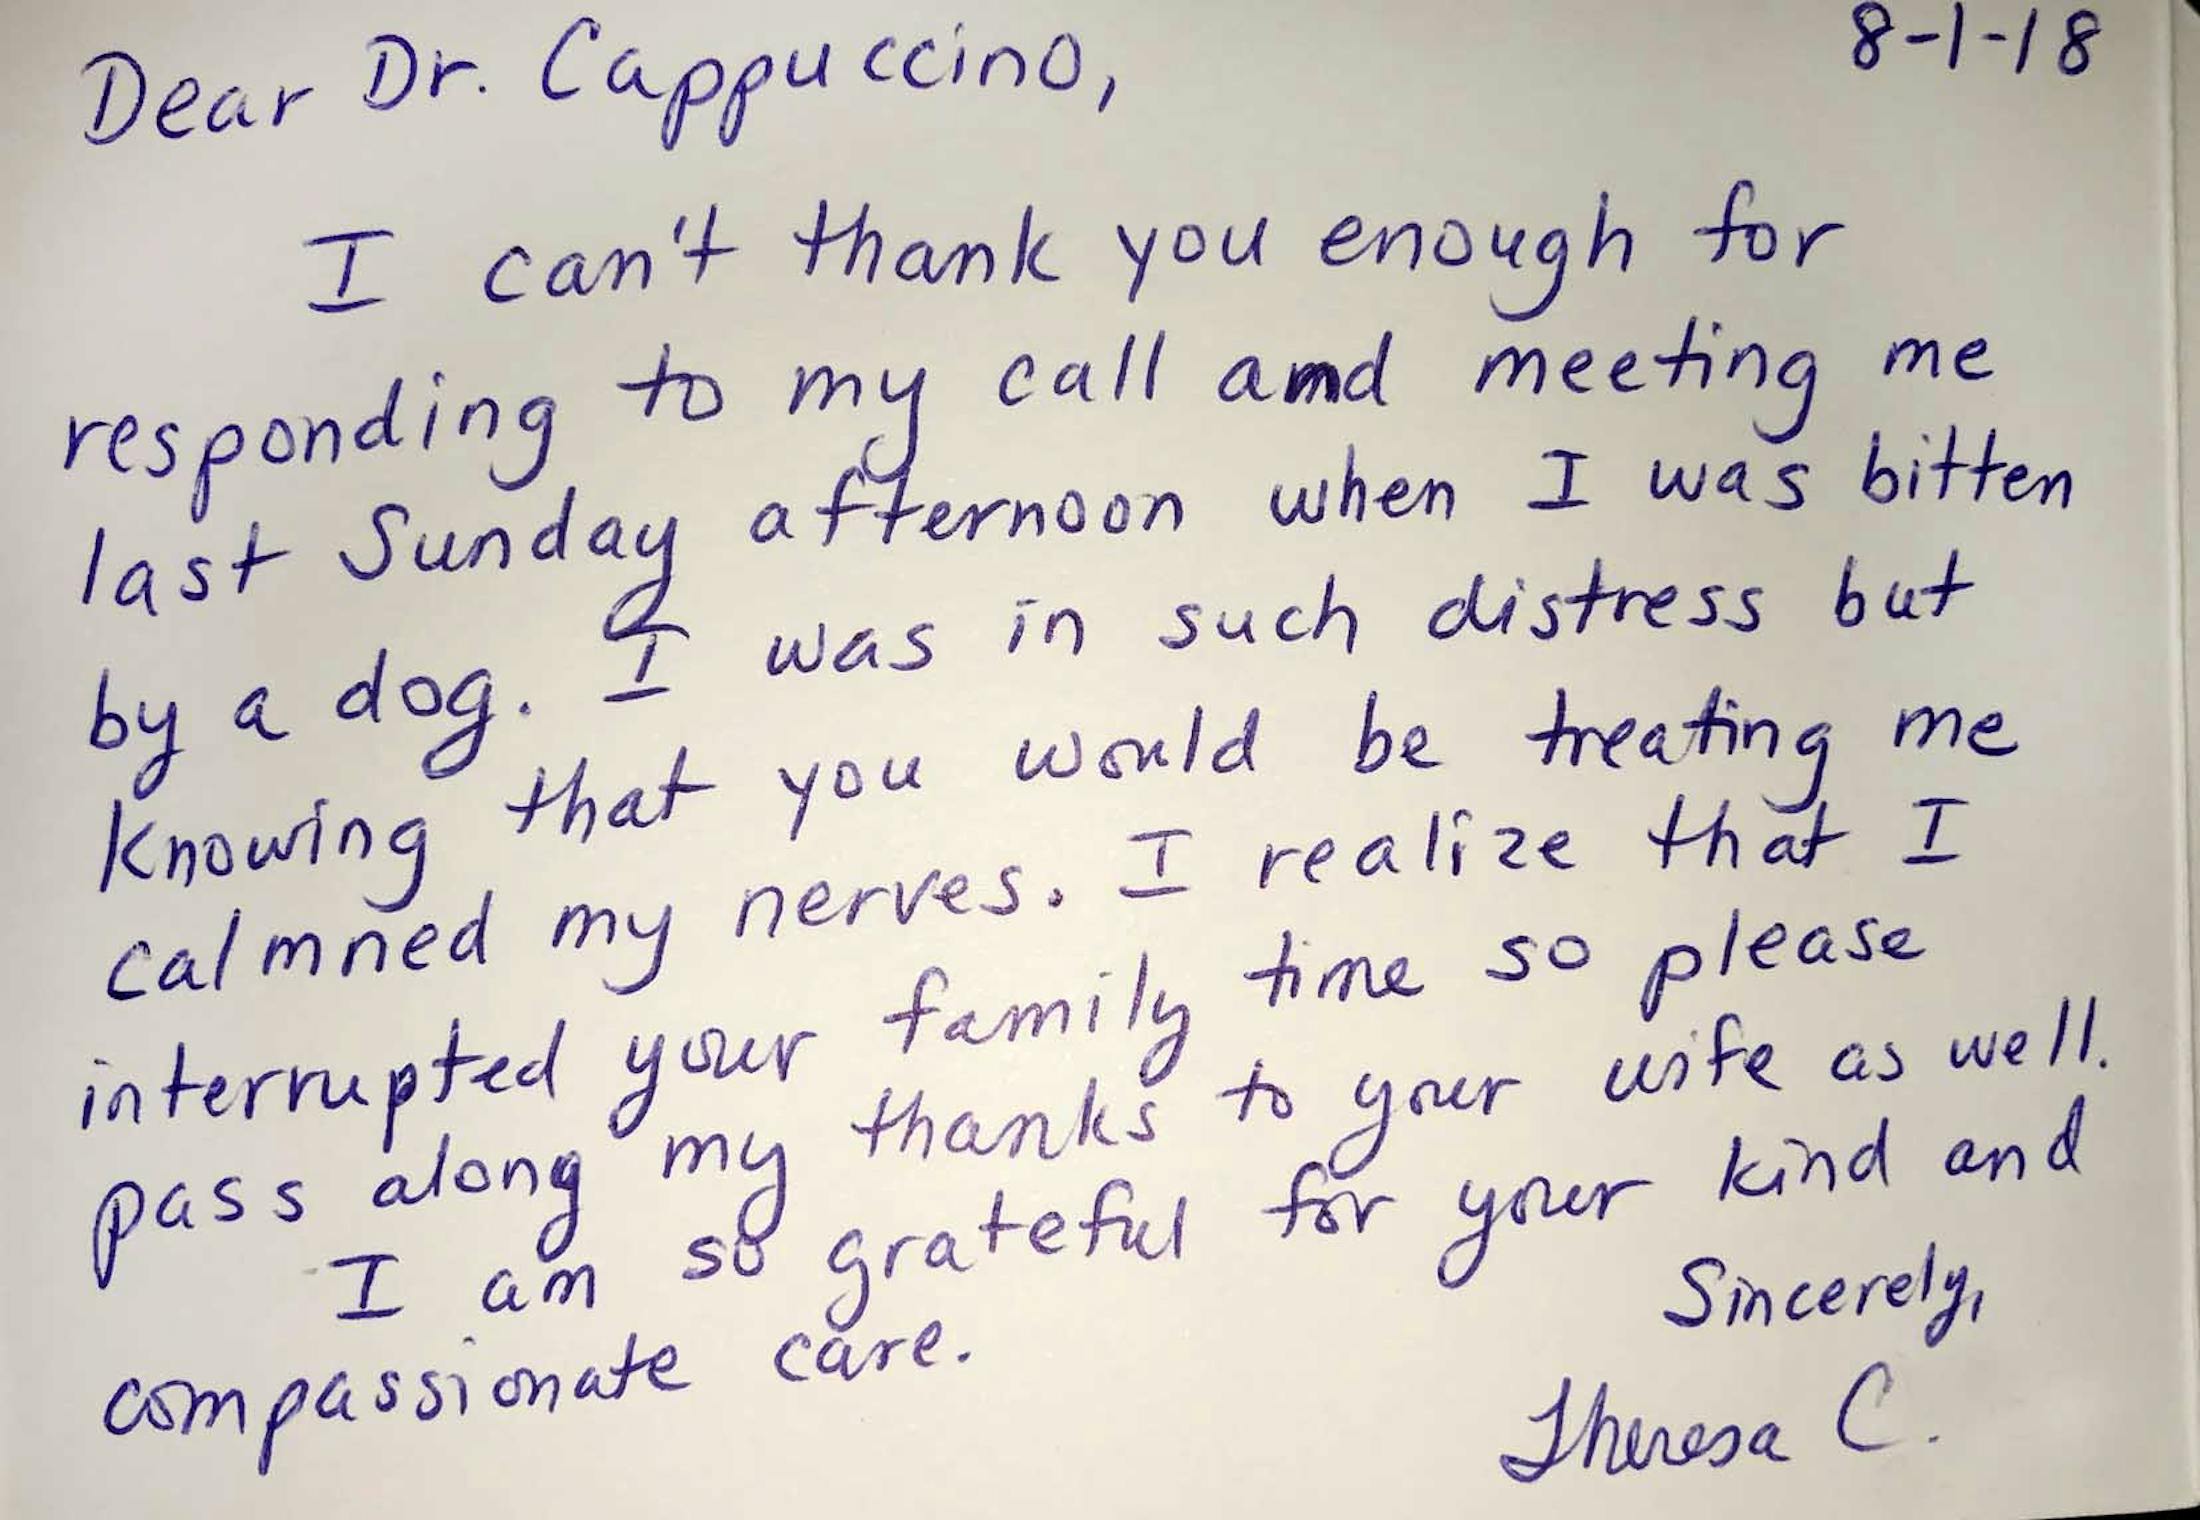 8-1-18
Dear Dr. Cappuccino,
I can't thank you enough for
responding to my call and meeting me
last Sunday afternoon when I was bitten
by a dog. I was in such distress but
knowing that you would be treating me
calmned my nerves. I realize that I
interrupted your family time so please
pass along my thanks to your wife as well.
I am so grateful for your kind and
compassionate care.
Sincerely,
Theresa C.